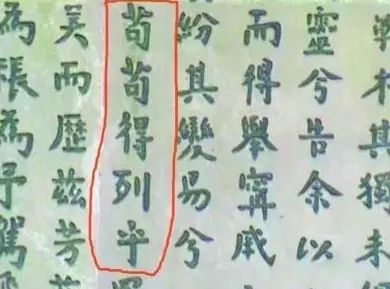 不其獨未
靈兮告余以
而得舉甯戚
紛其變易兮
苟苟得列乎
美而歷茲芳
為張為予駕